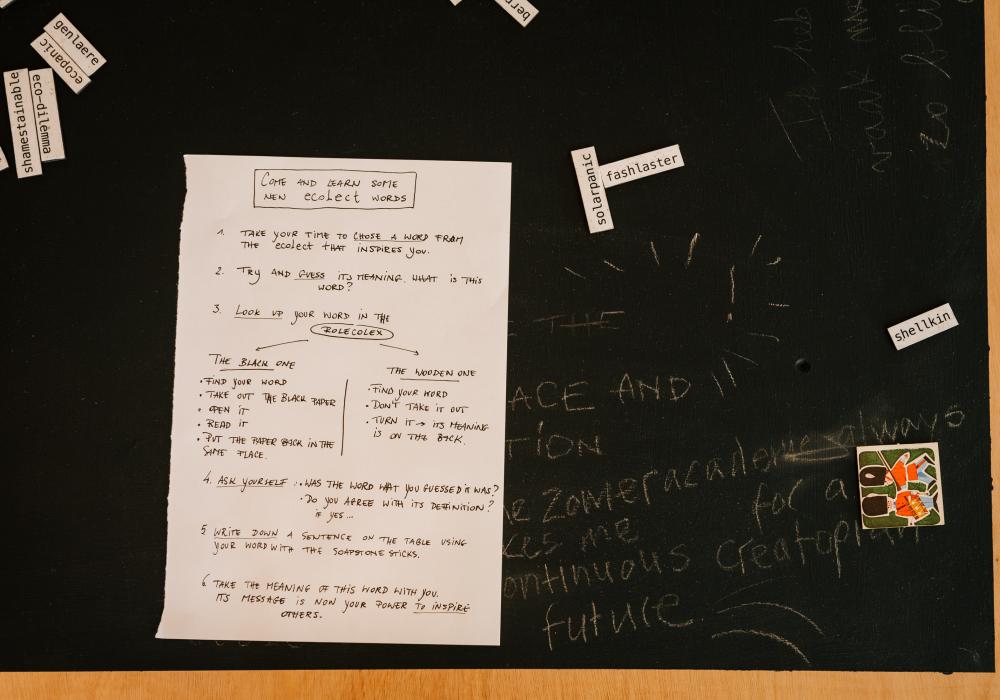 genlaere
ecopanic
shamestainable
eco-dilemma
solarpanic
fashlaster
shellkin
COME AND LEARN SOME
NEW ecolect WORDS
1. TAKE YOUR TIME TO CHOSE A WORD FROM
THE ecolect THAT INSPIRES YOU.
2. TRY AND GUESS ITS MEANING. WHAT IS THIS
WORD?
3. LOOK UP YOUR WORD IN THE
ROLECOLEX
THE BLACK ONE
• FIND YOUR WORD
• TAKE OUT THE BLACK PAPER
• OPEN IT
• READ IT
• PUT THE PAPER BACK IN THE
SAME PLACE.
THE WOODEN ONE
• FIND YOUR WORD
• DON'T TAKE IT OUT
• TURN IT → ITS MEANING
IS ON THE BACK.
4. ASK YOURSELF : • WAS THE WORD WHAT YOU GUESSED IT WAS?
• DO YOU AGREE WITH ITS DEFINITION?
IF YES...
5 WRITE DOWN A SENTENCE ON THE TABLE USING
YOUR WORD WITH THE SOAPSTONE STICKS.
6. TAKE THE MEANING OF THIS WORD WITH YOU.
ITS MESSAGE IS NOW YOUR POWER TO INSPIRE
OTHERS.
Ik heb
vaak me
zo
THE
ACE AND
TION
always
Zomeracademie
for a
me
continuous creatopian
future.